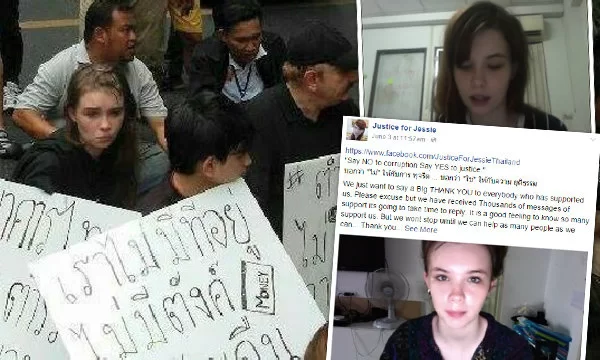 เราไม่มีที่อยู่
ไม่มีตังค์
MONEY
Justice for Jessie
June 3 at 11:52am
https://www.facebook.com/JusticeForJessieThailand
"Say NO to corruption Say YES to justice "
บอกว่า "ไม่" ให้กับการ ทุจริต ... บอกว่า "ใช่" ให้กับความ ยุติธรรม
We just want to say a Big THANK YOU to everybody who has supported
us. Please excuse but we have received Thousands of messages of
support its going to take time to reply. it is a good feeling to know so many
support us. But we wont stop until we can help as many people as we
can... Thank you... See More